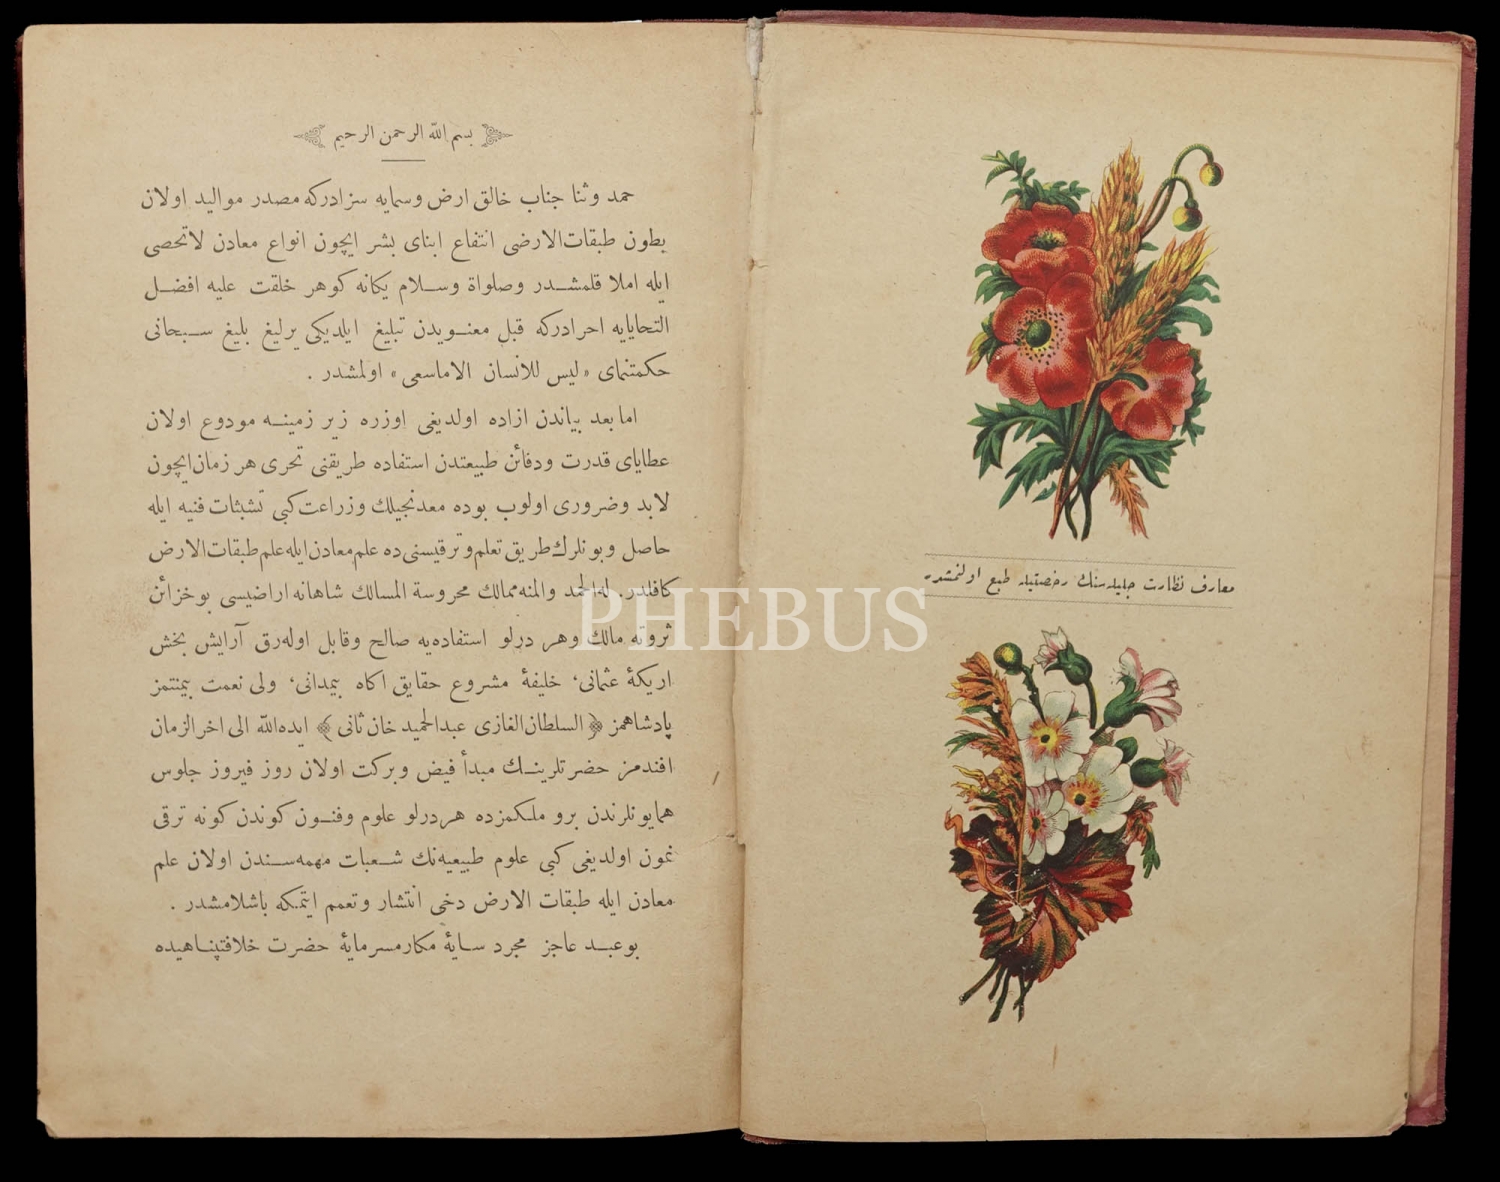 معارف نظارت جلیله‌سنك رخصتیله طبع اولنمشدر
بسم الله الرحمن الرحیم
حمد وثنا جناب خالق ارض وسمایه سزادرکه مصدر موالید اولان
بطون طبقات‌الارضی انتفاع ابنای بشر ایچون انواع معادن لاتحصی
ایله املا قلمشدر وصلواة وسلام یکانه کوهر خلقت علیه افضل
التحایایه احرادرکه قبل معنویدن تبلیغ ایلدیکی یرلیغ بلیغ سبحانی
حکمتنمای « لیس للانسان الاماسعی » اولمشدر .
اما بعد بیاندن ازاده اولدیغی اوزره زیر زمینه مودوع اولان
عطایای قدرت ودفائن طبیعتدن استفاده طریقنی تحری هر زمان ایچون
لابد وضروری اولوب بوده معدنجیلك وزراعت کبی تشبثات فنیه ایله
حاصل وبونلرك طریق تعلم وترقیسنی ده علم معادن ایله علم طبقات‌الارض
کافلدر. له‌الحمد والمنه ممالك محروسة المسالك شاهانه اراضیسی بوخزائن
ثروته مالك وهر درلو استفاده‌یه صالح وقابل اوله‌رق آرایش بخش
اریکهٔ عثمانی، خلیفهٔ مشروع حقایق اکاه یمدانی، ولی نعمت بیمنتمز
پادشاهمز ﴿ السلطان الغازی عبدالحمید خان ثانی ﴾ ایده‌الله الی اخر الزمان
افندمز حضرتلرینك مبدأ فیض وبرکت اولان روز فیروز جلوس
همایونلرندن برو ملکمزده هردرلو علوم وفنون کوندن کونه ترقی
نمون اولدیغی کبی علوم طبیعیه‌نك شعبات مهمه‌سندن اولان علم
معادن ایله طبقات الارض دخی انتشار وتعمم ایتمکه باشلامشدر .
بوعبد عاجز مجرد سایهٔ مکارمسرمایهٔ حضرت خلافتپناهیده
PHEBUS